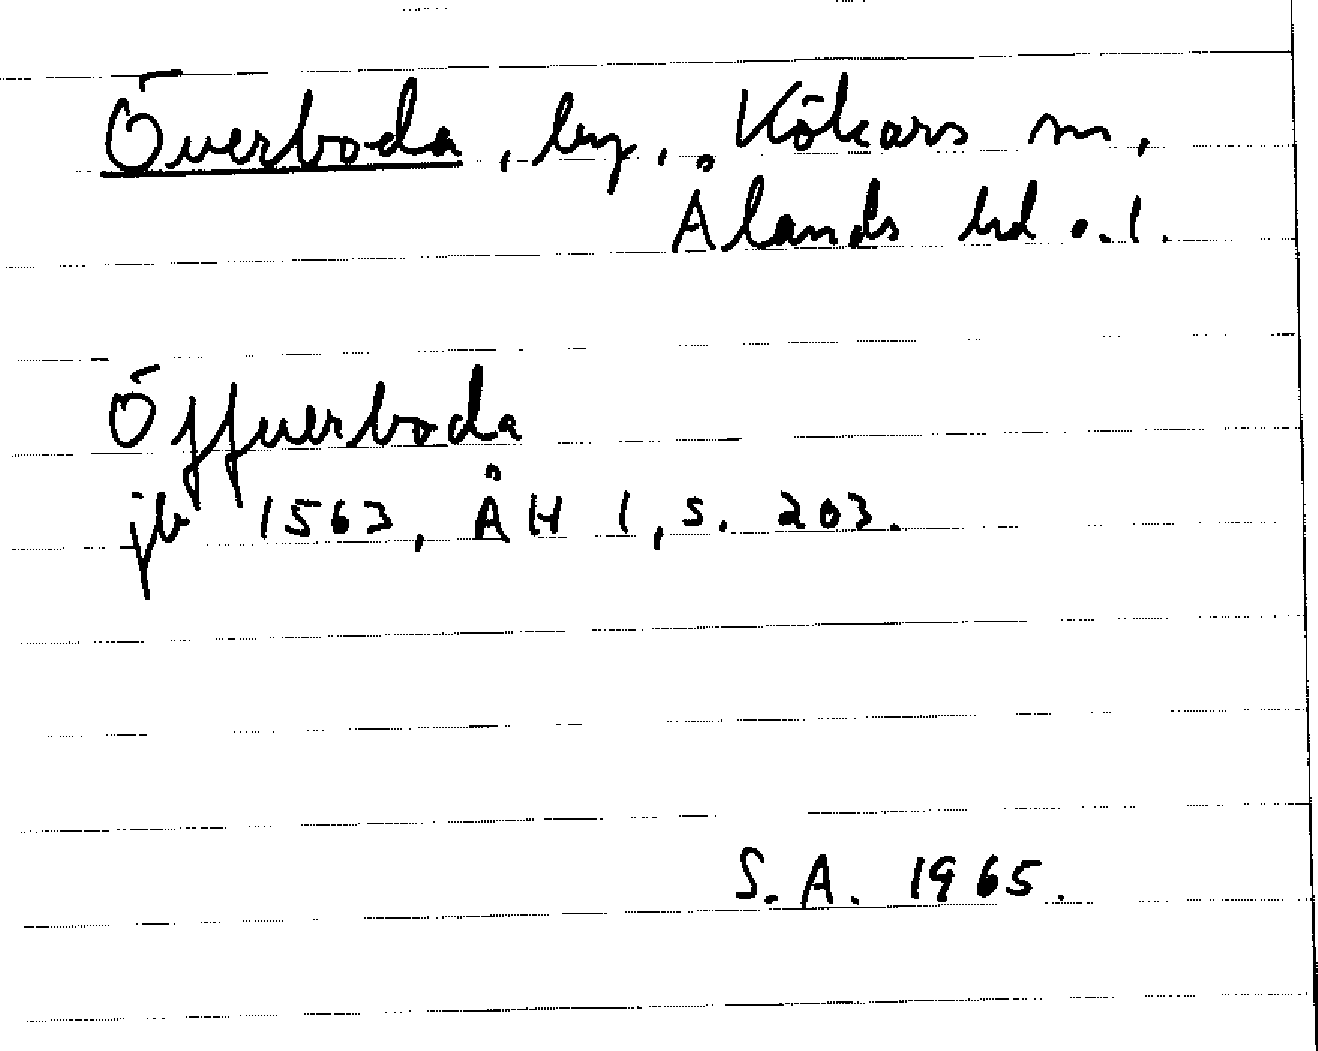 Överboda, by, Kökars sn,
Ålands hd o. l.
Öffuerboda
jb 1563, ÅH 1, s. 203.
S.A. 1965.